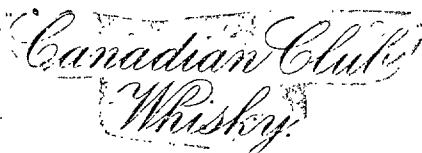 Canadian Club
Whisky.